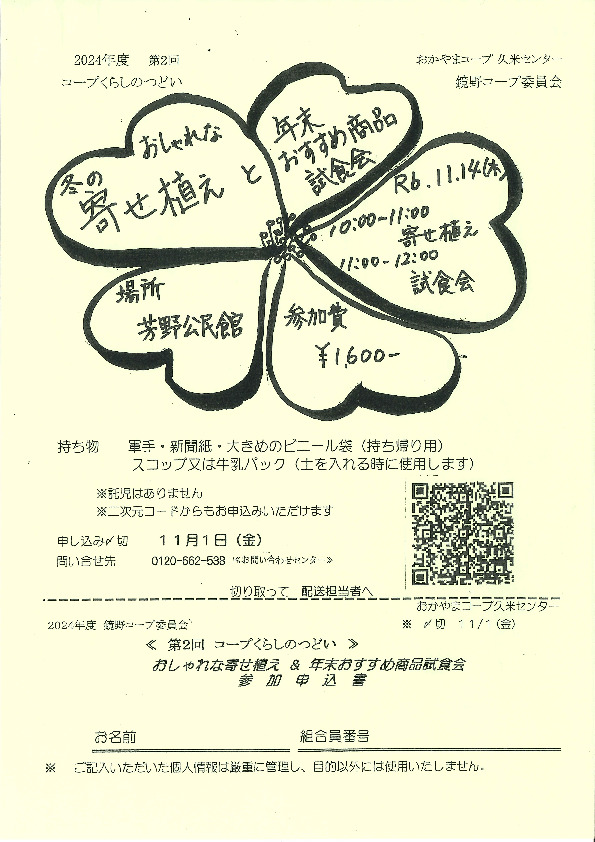 2024年度　第2回
コープくらしのつどい
おかやまコープ 久米センター
鏡野コープ委員会
冬の
おしゃれな
寄せ植え と
年末
おすすめ商品
試食会
R6.11.14(木)
10:00-11:00
寄せ植え
11:00-12:00
試食会
場所
芳野公民館
参加費
¥1,600-
持ち物　軍手・新聞紙・大きめのビニール袋（持ち帰り用）
スコップ又は牛乳パック（土を入れる時に使用します）
※託児はありません
※二次元コードからもお申込みいただけます
申し込み〆切　１１月１日（金）
問い合せ先　0120-662-538 ≪お問い合わせセンター≫
切り取って　配送担当者へ
おかやまコープ久米センター
2024年度 鏡野コープ委員会
※　〆切　11/1（金）
≪ 第2回 コープくらしのつどい ≫
おしゃれな寄せ植え ＆ 年末おすすめ商品試食会
参 加 申 込 書
お名前　組合員番号
※　ご記入いただいた個人情報は厳重に管理し、目的以外には使用いたしません。